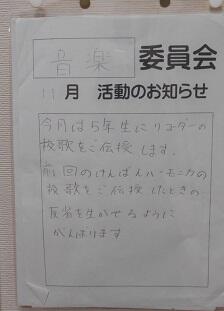 音楽 委員会
11月 活動のお知らせ
今月は5年生にリコーダーの
校歌をご伝授します。
前回のけんばんハーモニカの
校歌をご伝授したときの
反省を生かせるように
がんばります